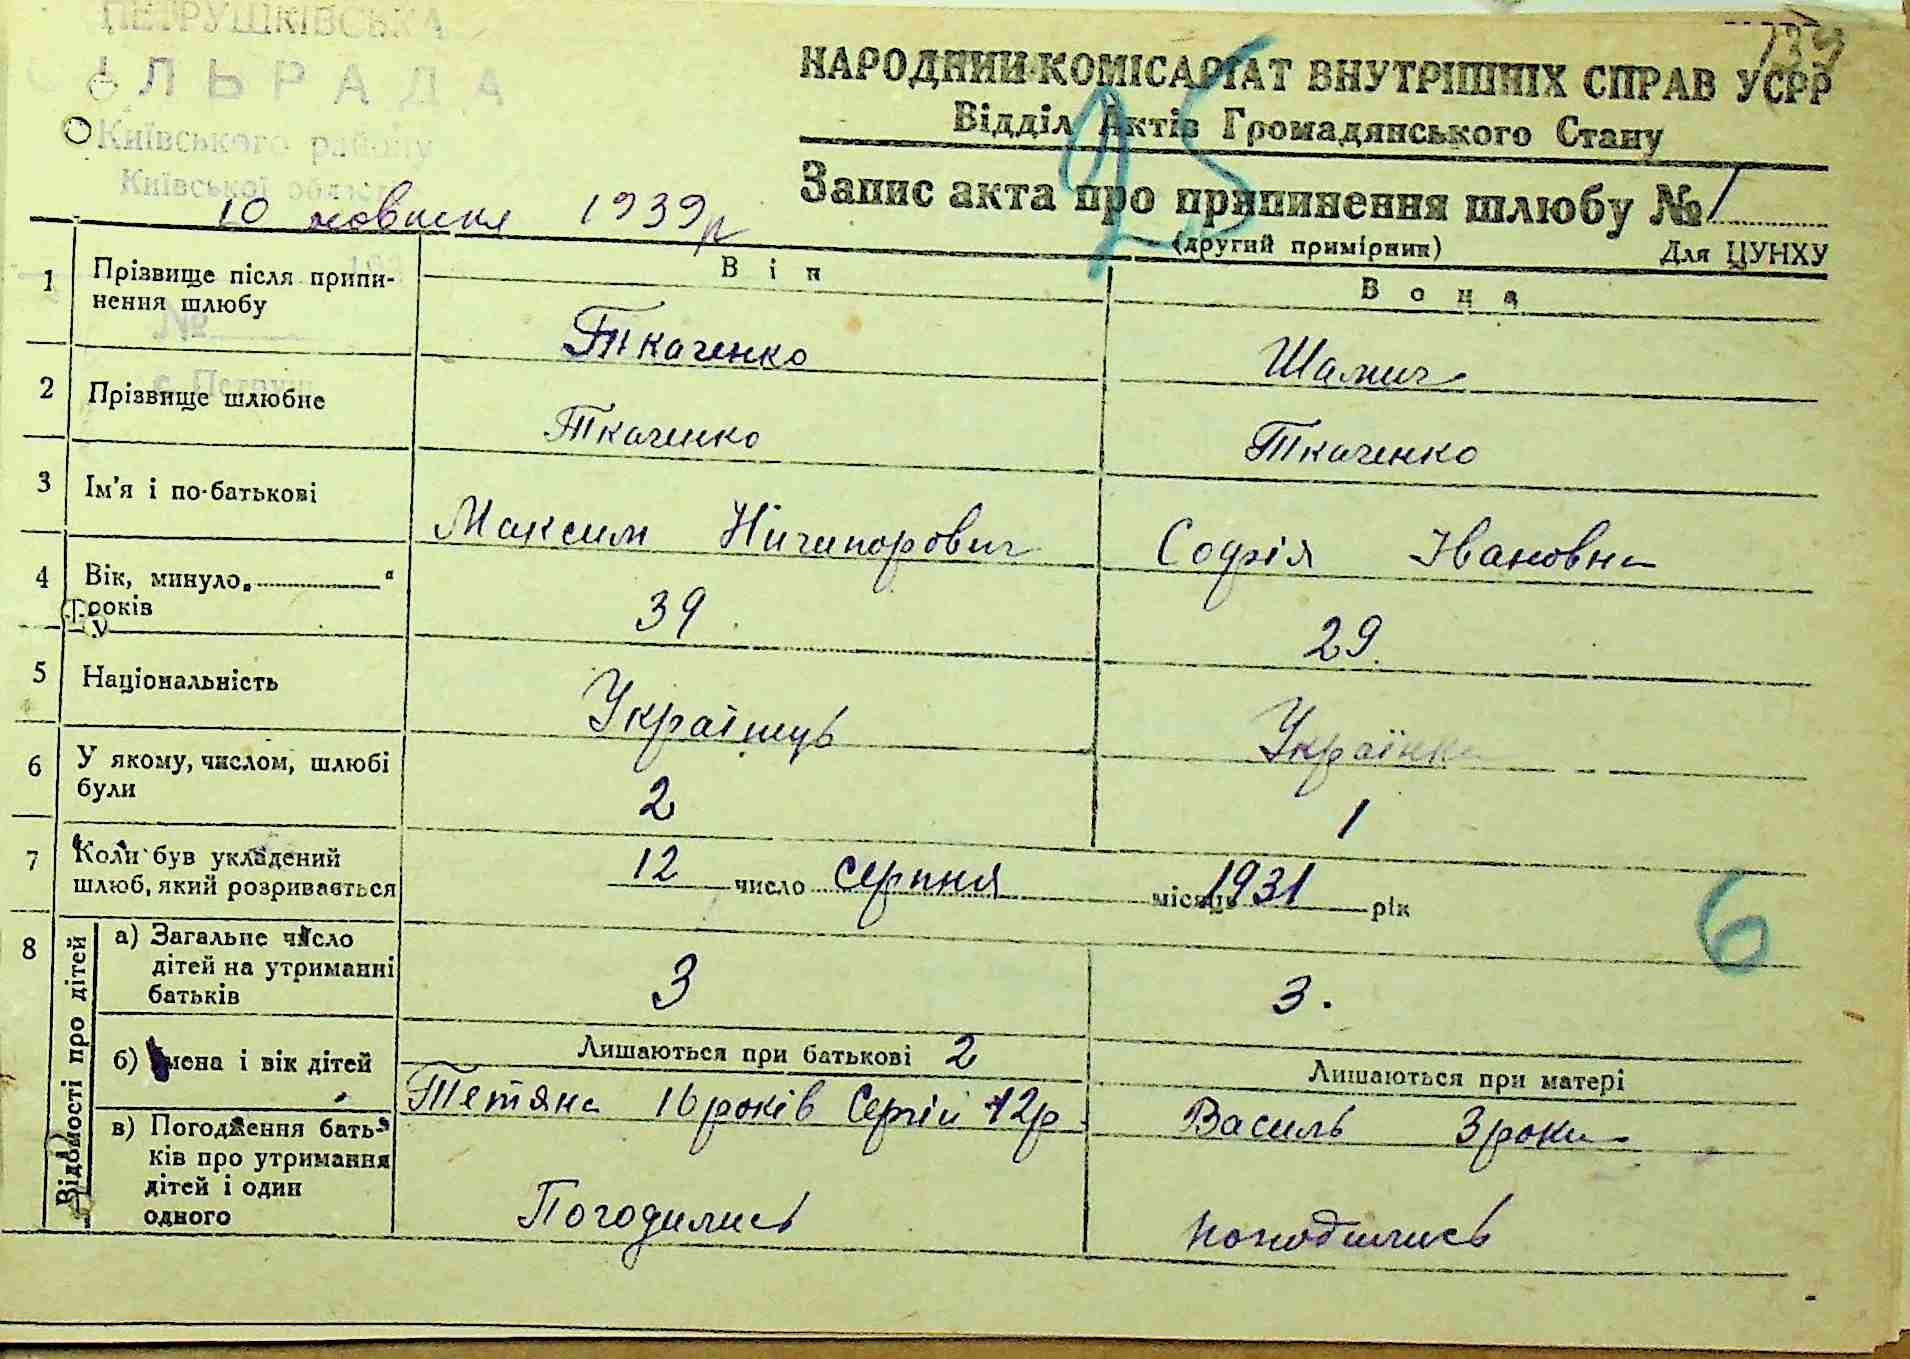 ПЕТРУШКІВСЬКА
СІЛЬРАДА
Київського району
Київської області
№
с. Петруш
139
25
НАРОДНИЙ КОМІСАРІАТ ВНУТРІШНІХ СПРАВ УСРР
Відділ Актів Громадянського Стану
Запис акта про припинення шлюбу № 1
(другий примірник) Для ЦУНХУ
10 жовтня 1939р
Він Вона
1 Прізвище після припинення шлюбу Ткаченко Шамич
2 Прізвище шлюбне Ткаченко Ткаченко
3 Ім'я і по-батькові Максим Нічипорович Софія Івановна
4 Вік, минуло „ “ років 39 29.
5 Національність Українець Українка
6 У якому, числом, шлюбі були 2 1
7 Коли був укладений шлюб, який розривається 12 число серпня місяць 1931 рік
6
8 Відомості про дітей
а) Загальне число дітей на утриманні батьків 3 3.
б) Імена і вік дітей Лишаються при батькові 2 Лишаються при матері
Тетяна 16 років Сергій 12р. Василь 3 роки
в) Погодження батьків про утримання дітей і один одного Погодились погодились